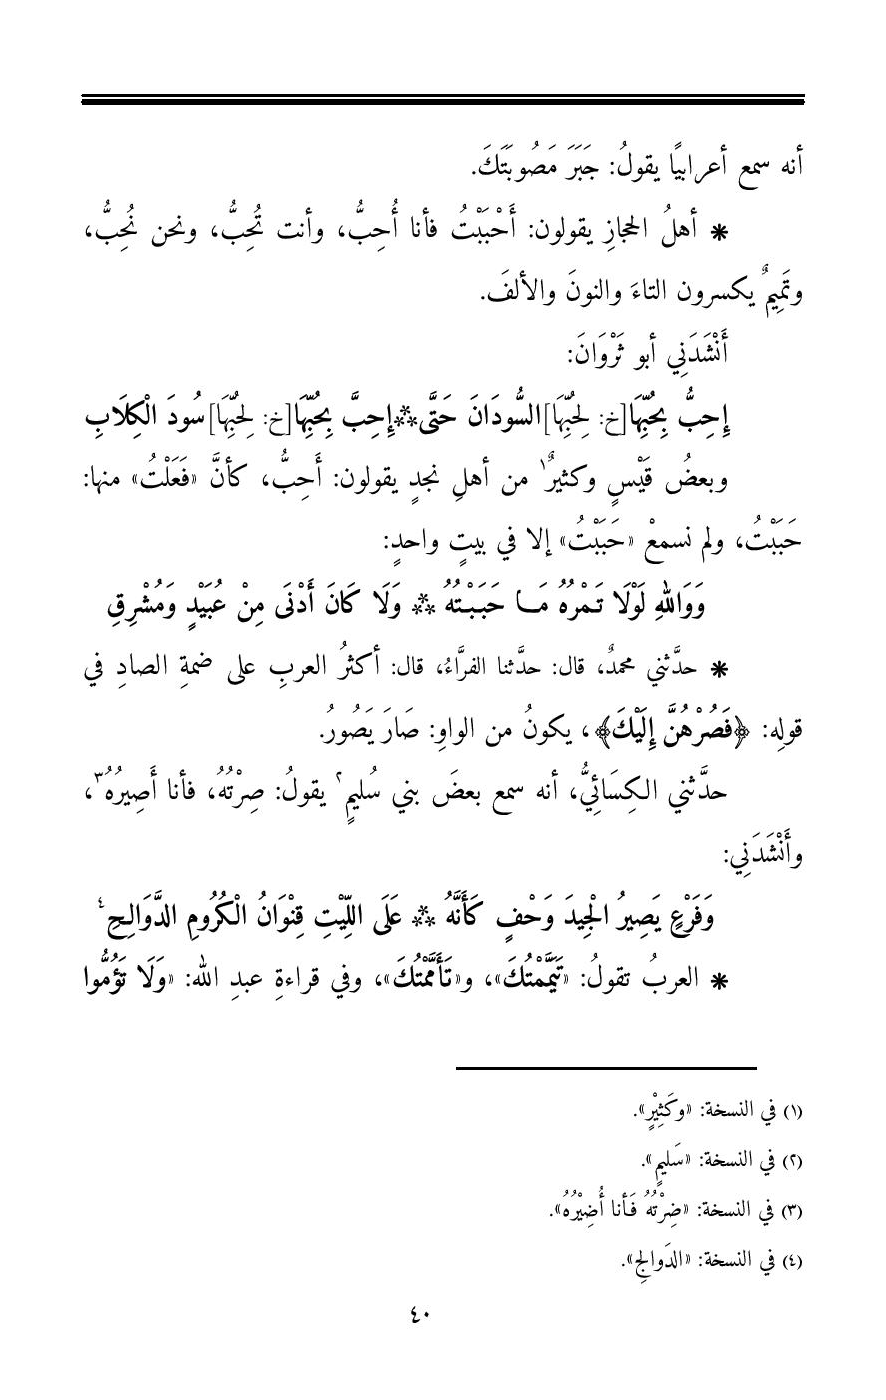 أنه سمع أعرابيًا يقولُ: جَبَرَ مَصُوبَتَكَ.
* أهلُ الحجازِ يقولون: أَحْبَبْتُ فأنا أُحِبُّ، وأنت تُحِبُّ، ونحن نُحِبُّ،
وتَمِيمٌ يكسرون التاءَ والنونَ والألفَ.
أَنْشَدَنِي أبو ثَرْوَانَ:
إِحِبُّ بِحُبِّهَا[خ: لِحُبِّهَا]السُّودَانَ حَتَّى⁂إِحِبَّ بِحُبِّهَا[خ: لِحُبِّهَا]سُودَ الْكِلَابِ
وبعضُ قَيْسٍ وكثيرٌ١ من أهلِ نجدٍ يقولون: أَحِبُّ، كأنَّ «فَعَلْتُ» منها:
حَبَبْتُ، ولم نسمعْ «حَبَبْتُ» إلا في بيتٍ واحدٍ:
وَوَاللهِ لَوْلَا تَمْرُهُ مَا حَبَبْتُهُ ⁂ وَلَا كَانَ أَدْنَى مِنْ عُبَيْدٍ وَمُشْرِقِ
* حدَّثني محمدٌ، قال: حدَّثنا الفرَّاءُ، قال: أكثرُ العربِ على ضمةِ الصادِ في
قولِه: ﴿فَصُرْهُنَّ إِلَيْكَ﴾، يكونُ من الواوِ: صَارَ يَصُورُ.
حدَّثني الكِسَائِيُّ، أنه سمع بعضَ بني سُليمٍ٢ يقولُ: صِرْتُهُ، فأنا أَصِيرُهُ٣،
وأَنْشَدَنِي:
وَفَرْعٍ يَصِيرُ الْجِيدَ وَحْفٍ كَأَنَّهُ ⁂ عَلَى اللِّيْتِ قِنْوَانُ الْكُرُومِ الدَّوَالِحِ٤
* العربُ تقولُ: «تَيَمَّمْتُكَ»، و«تَأَمَّمْتُكَ»، وفي قراءةِ عبدِ الله: «وَلَا تَؤُمُّوا
(١) في النسخة: «وكَثِيْرٍ».
(٢) في النسخة: «سَليمٍ».
(٣) في النسخة: «ضِرْتُهُ فَأنا أُضِيْرُهُ».
(٤) في النسخة: «الدَوالِجِ».
٤٠